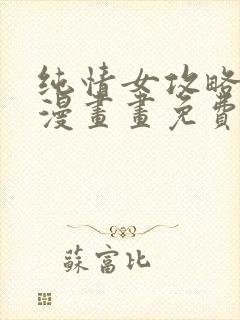 纯情女攻略
漫畫畫免費
蘇富比